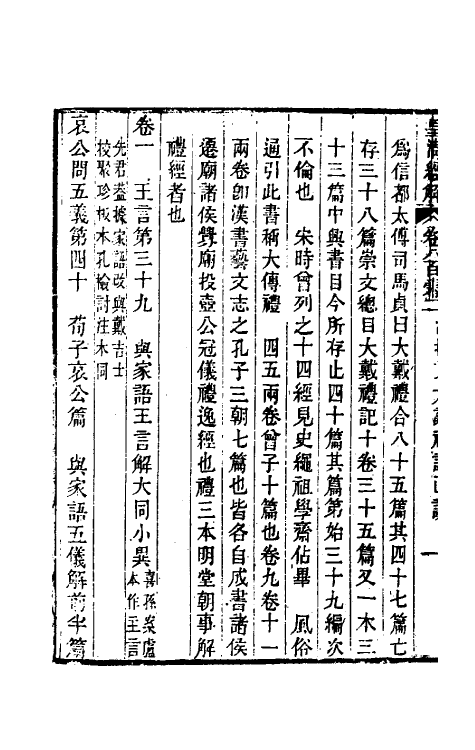 皇清經解
爲信都太傅司馬貞曰大戴禮合八十五篇其四十七篇亡
存三十八篇崇文總目大戴禮記十卷三十五篇又一本三
十三篇中興書目今所存止四十篇其篇第始三十九編次
不倫也　宋時曾列之十四經見史繩祖學齋佔畢　風俗
通引此書稱大傳禮　四五兩卷曾子十篇也卷九卷十一
兩卷卽漢書藝文志之孔子三朝七篇也皆各自成書諸侯
遷廟諸侯釁廟投壺公冠儀禮逸經也禮三本明堂朝事解
禮經者也
卷一　王言第三十九　與家語王言解大同小異喜孫案盧
本作主言
先君葢據家語改與戴吉士
校聚珍板本孔檢討注本同
哀公問五義第四十　荀子哀公篇　與家語五儀解前半篇